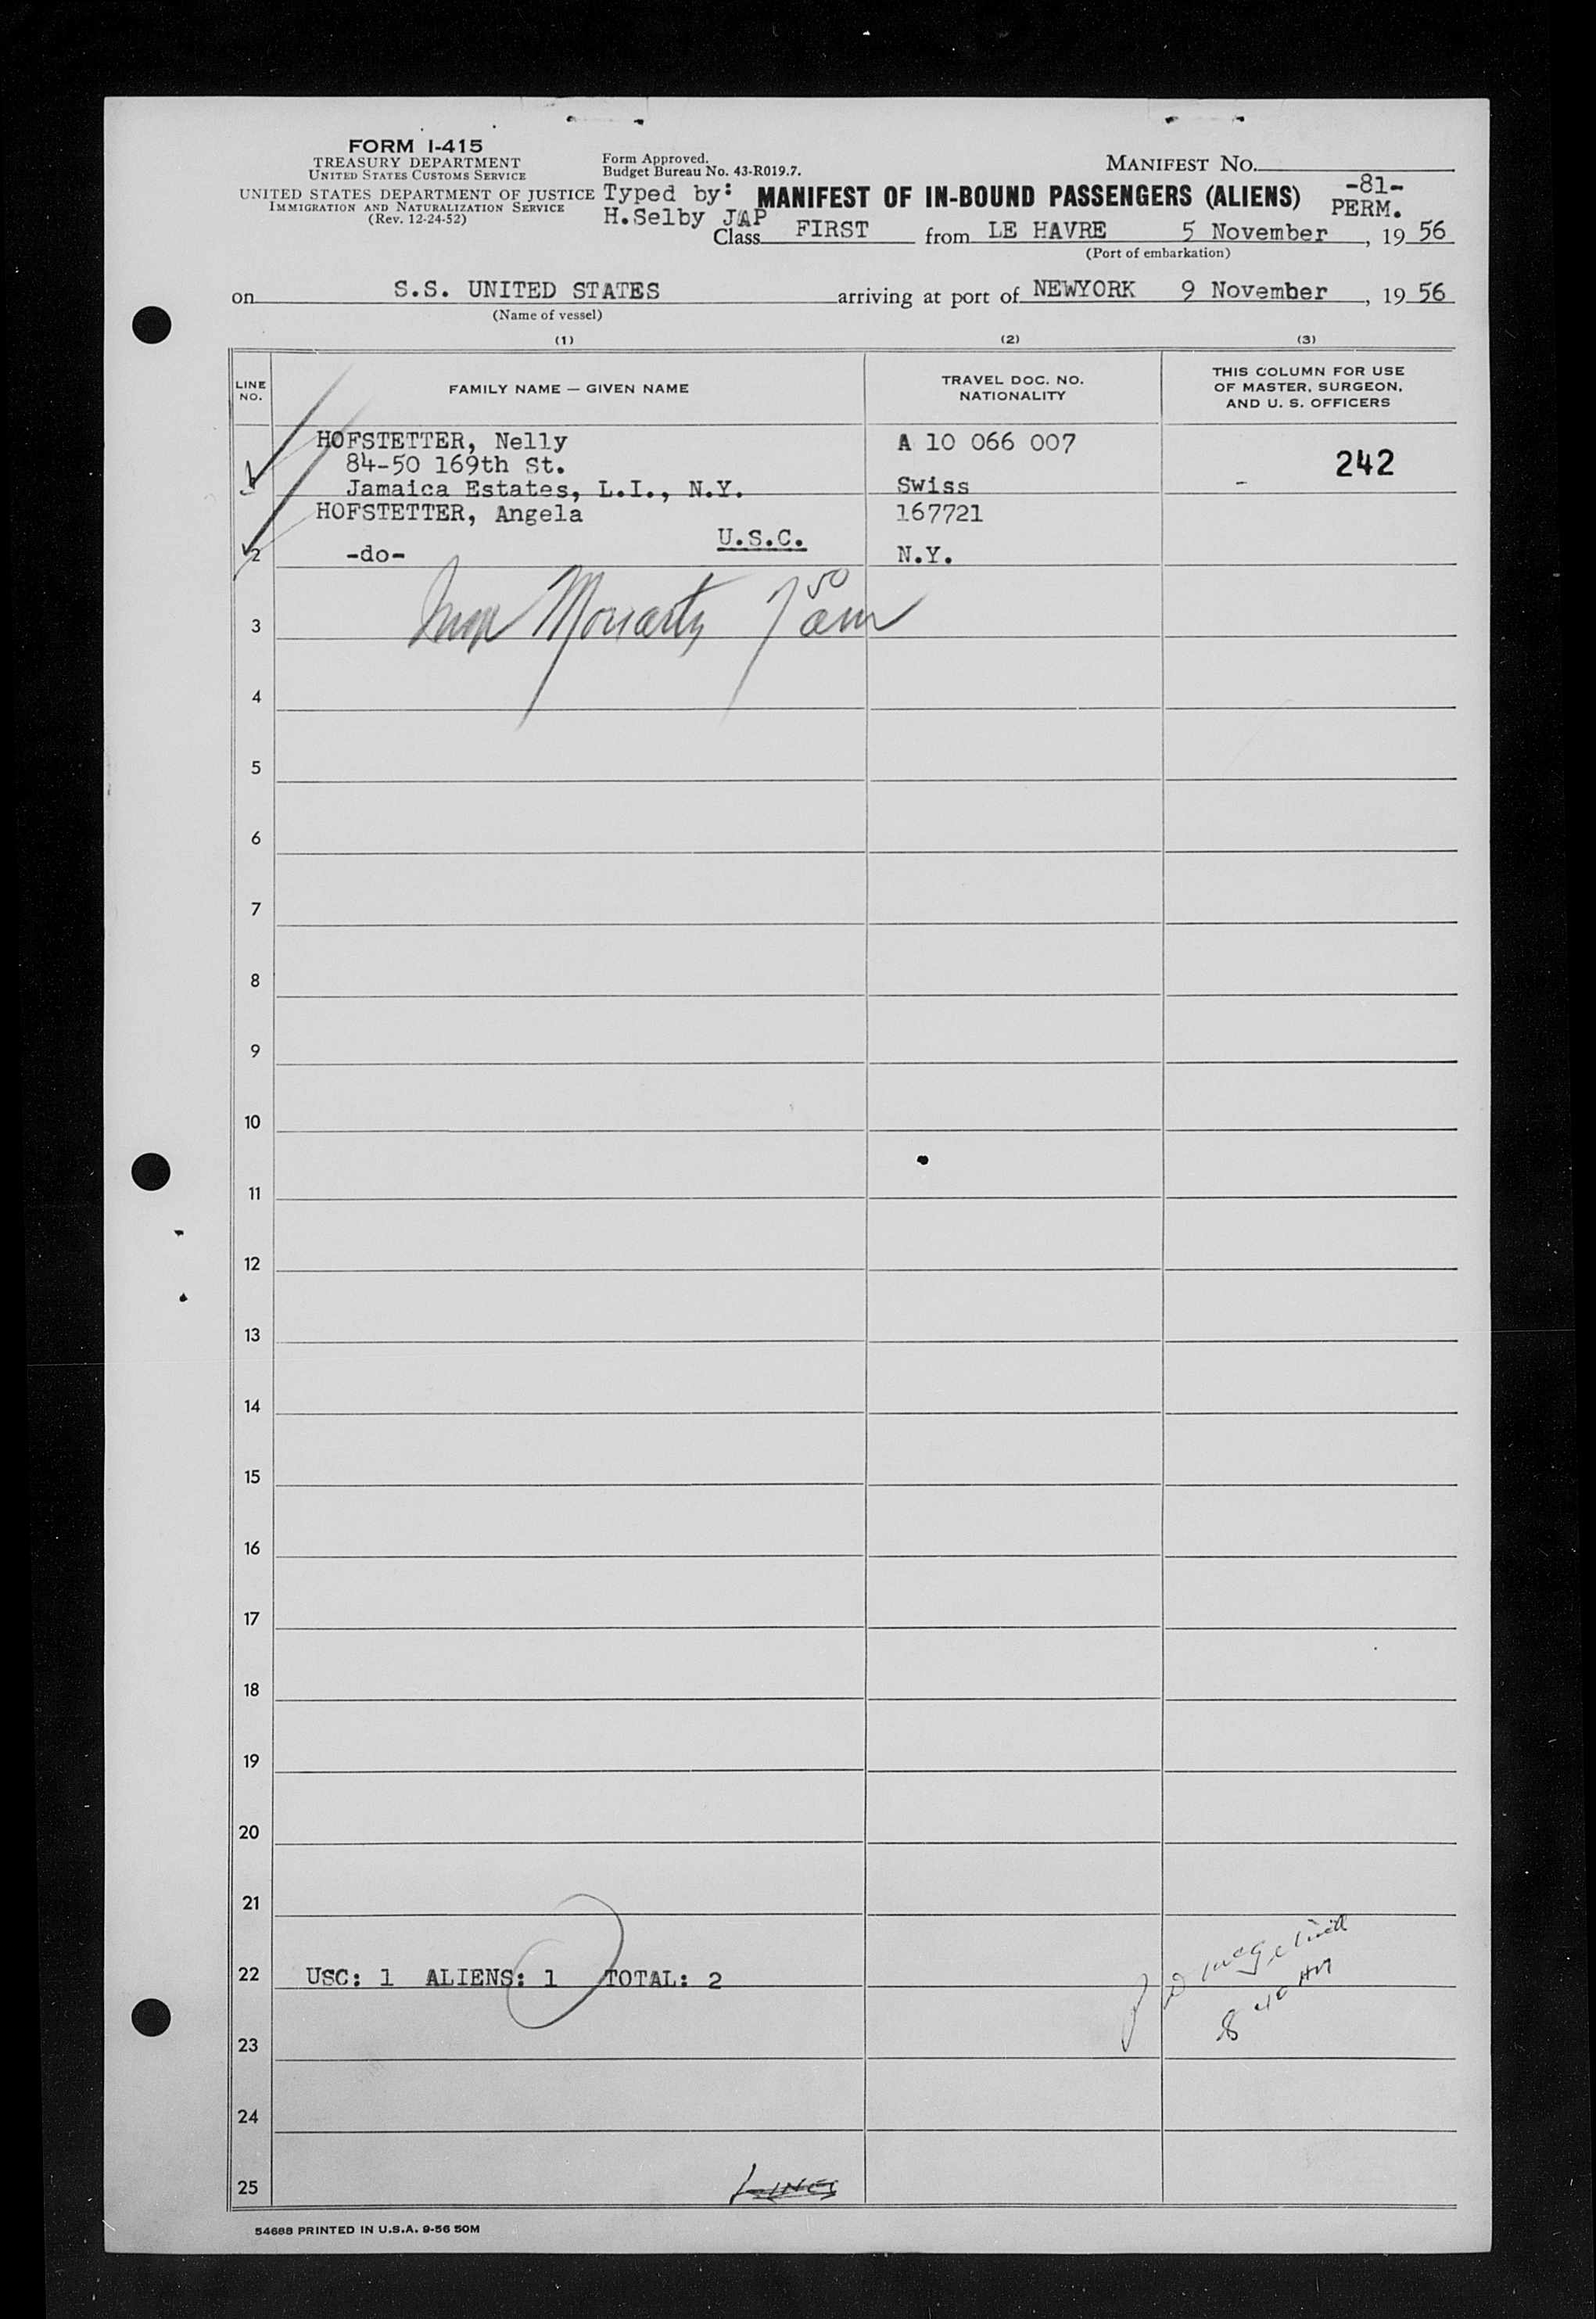 FORM I-415
TREASURY DEPARTMENT
UNITED STATES CUSTOMS SERVICE
UNITED STATES DEPARTMENT OF JUSTICE
IMMIGRATION AND NATURALIZATION SERVICE
(Rev. 12-24-52)
Form Approved.
Budget Bureau No. 43-R019.7.
Typed by:
H.Selby JAP
MANIFEST NO.
-81-
PERM.
MANIFEST OF IN-BOUND PASSENGERS (ALIENS)
Class FIRST from LE HAVRE 5 November, 19 56
(Port of embarkation)
on S.S. UNITED STATES arriving at port of NEWYORK 9 November, 19 56
(Name of vessel)
(1) (2) (3)
LINE NO. FAMILY NAME — GIVEN NAME TRAVEL DOC. NO. NATIONALITY THIS COLUMN FOR USE OF MASTER, SURGEON, AND U. S. OFFICERS
HOFSTETTER, Nelly A 10 066 007
84-50 169th St. 242
Jamaica Estates, L.I., N.Y. Swiss -
HOFSTETTER, Angela 167721
U.S.C.
2 -do- N.Y.
Moriarty 7 50 am
3
4
5
6
7
8
9
10
11
12
13
14
15
16
17
18
19
20
21
22 USC: 1 ALIENS: 1 TOTAL: 2
8 40 AM
23
24
25
54688 PRINTED IN U.S.A. 9-56 50M